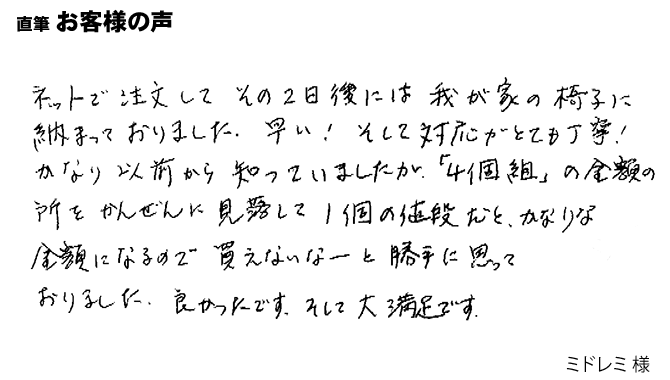 直筆 お客様の声
ネットで注文して その2日後には 我が家の椅子に
納まっておりました. 早い! そして対応がとても丁寧!
かなり以前から 知っていましたが、「4個組」の金額の
所を かんぜんに 見落して 1個の値段だと、かなりな
金額になるので 買えないなーと 勝手に思って
おりました. 良かったです. そして 大満足です.
ミドレミ 様